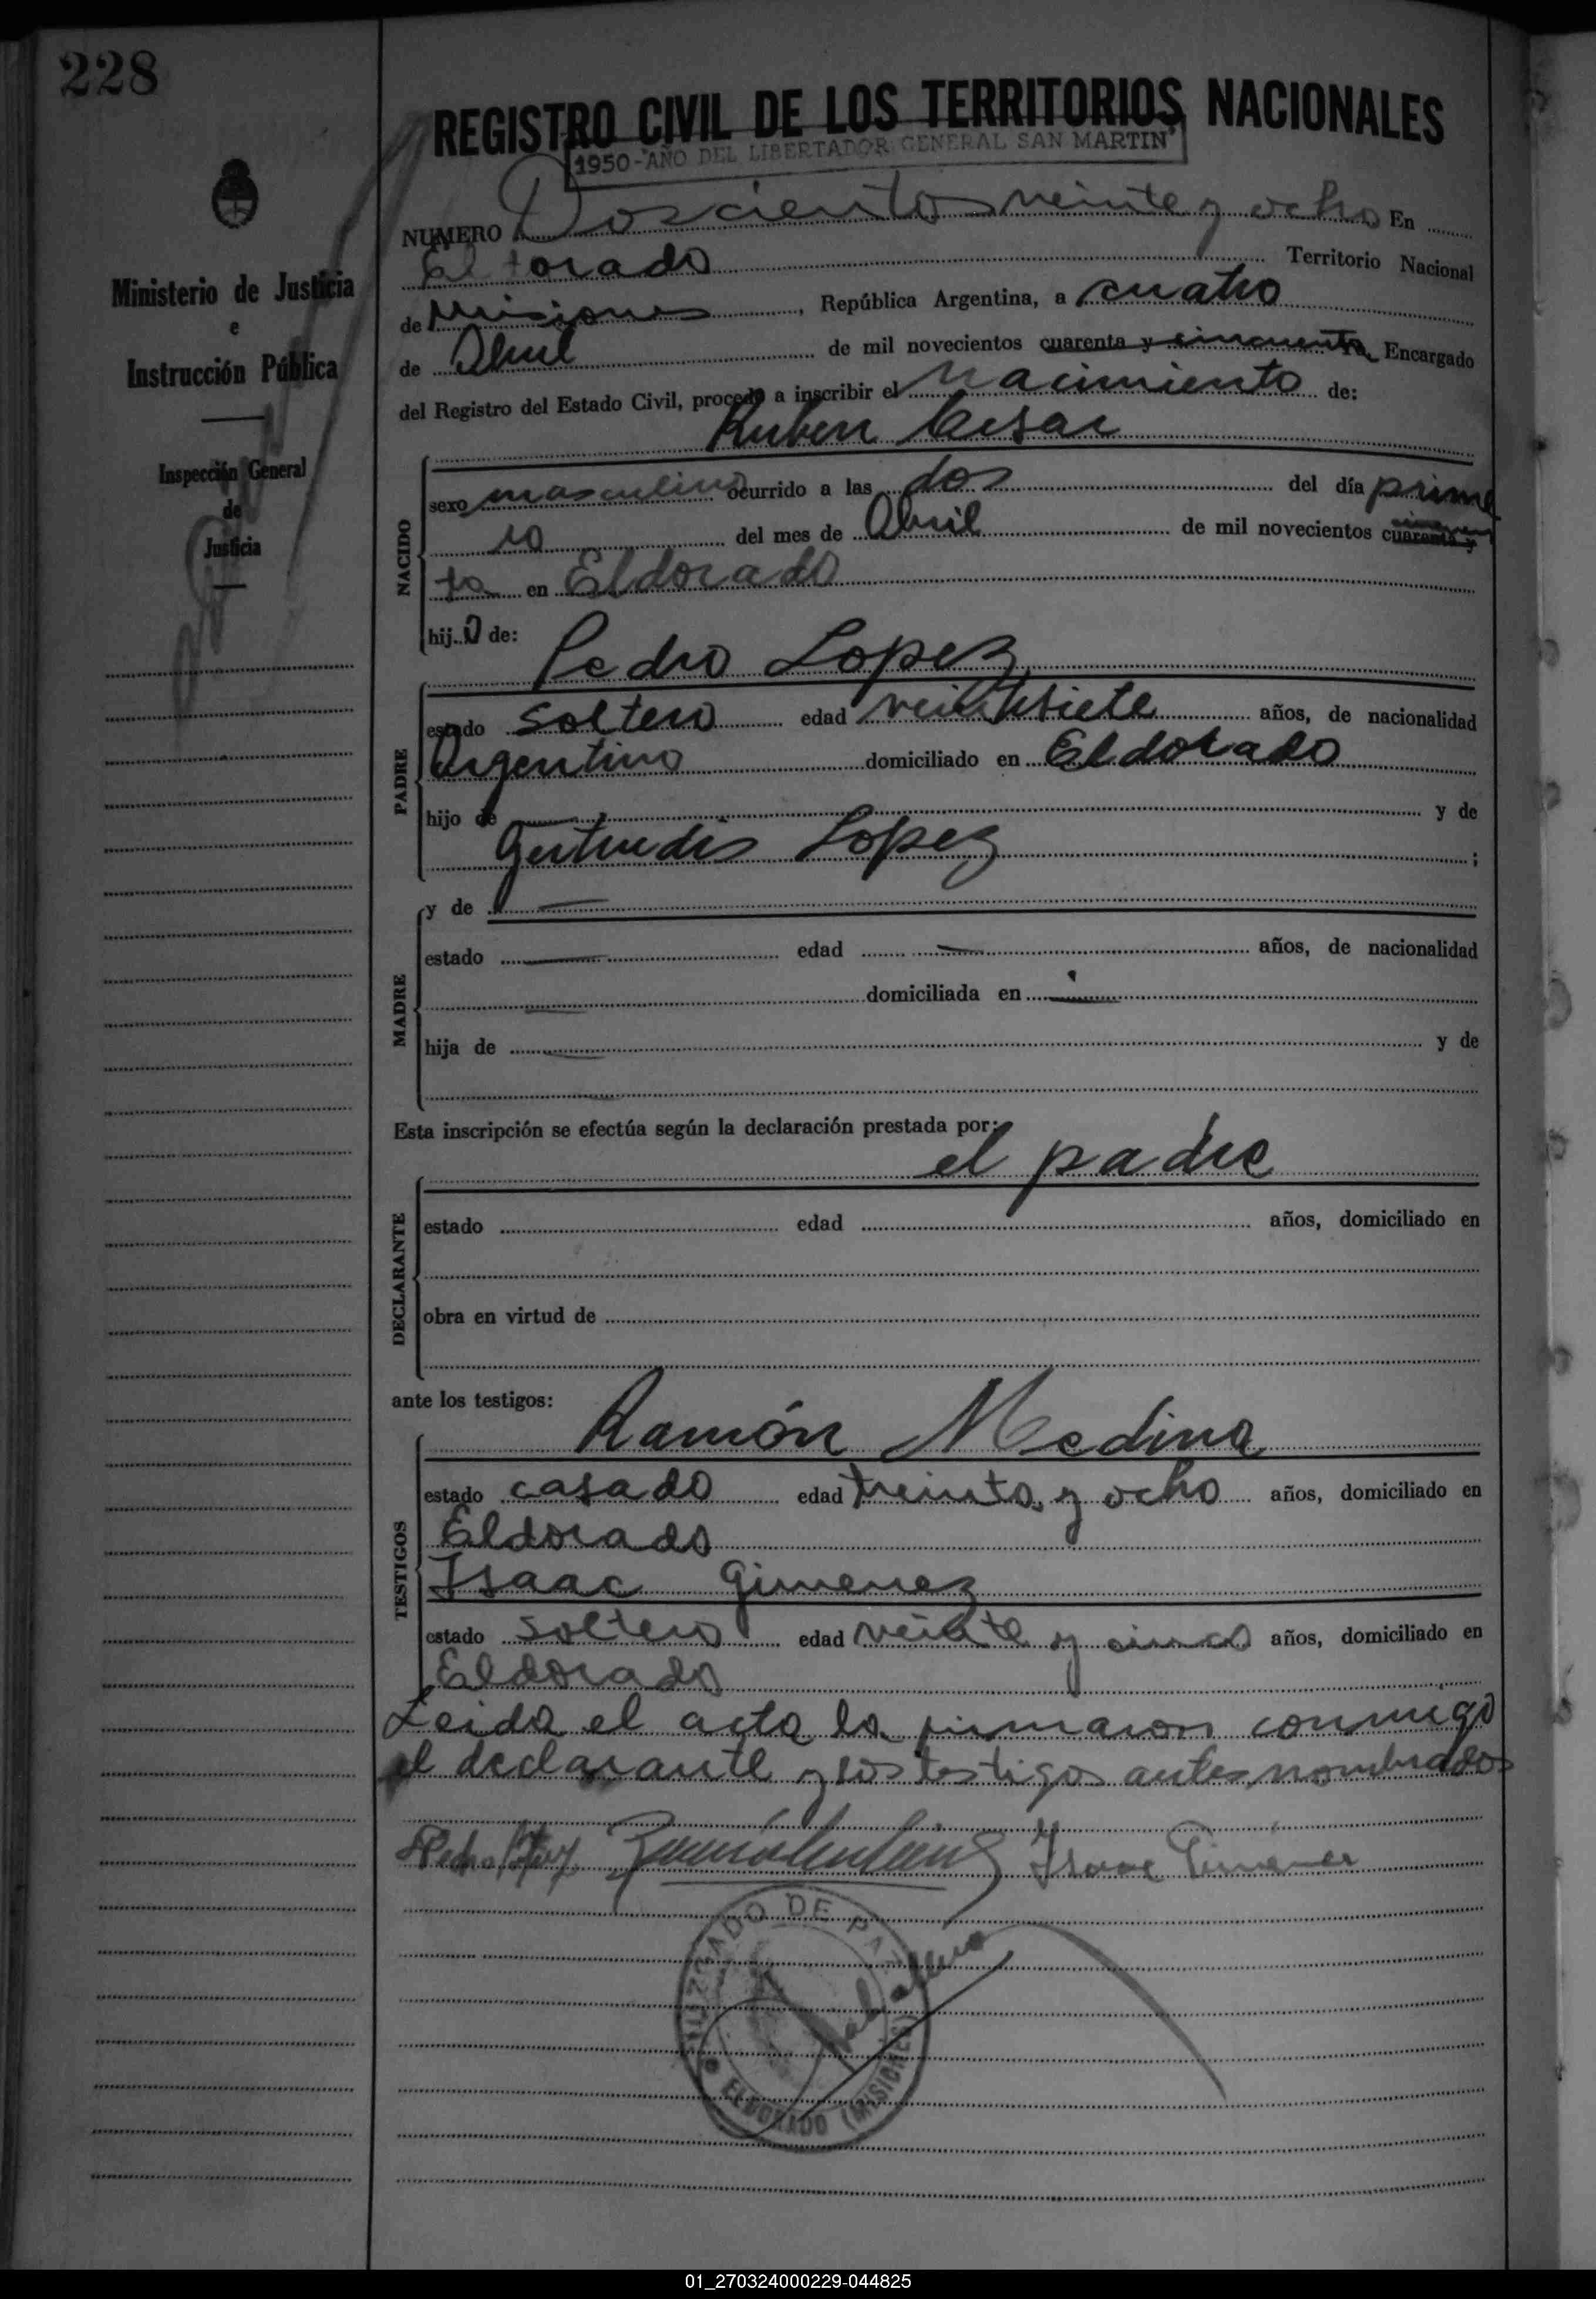 228
REGISTRO CIVIL DE LOS TERRITORIOS NACIONALES
1950-"AÑO DEL LIBERTADOR GENERAL SAN MARTIN"
NUMERO Doscientos veinte y ocho En
Eldorado Territorio Nacional
de Misiones, República Argentina, a cuatro
de Abril de mil novecientos cuarenta y cincuenta Encargado
del Registro del Estado Civil, procedo a inscribir el Nacimiento de:
Ruben Cesar
Ministerio de Justicia
e
Instrucción Pública
Inspección General
de
Justicia
NACIDO
sexo masculino ocurrido a las dos del día prime
ro del mes de Abril de mil novecientos cuarenta y cincuen
ta en Eldorado
hijo de:
Pedro Lopez
PADRE
estado soltero edad veintisiete años, de nacionalidad
Argentino domiciliado en Eldorado
hijo de y de
Gertrudis Lopez ;
MADRE
y de
estado edad años, de nacionalidad
domiciliada en
hija de y de
Esta inscripción se efectúa según la declaración prestada por:
el padre
DECLARANTE
estado edad años, domiciliado en
obra en virtud de
ante los testigos:
Ramón Medina
TESTIGOS
estado casado edad treinta y ocho años, domiciliado en
Eldorado
Isaac Gimenez
estado soltero edad veinte y cinco años, domiciliado en
Eldorado
Leida el acta la firmaron conmigo
el declarante y los testigos antes nombrados
Pedro Lopez Isaac Gimenez
JUZGADO DE PAZ
ELDORADO (MISIONES)
01_270324000229-044825